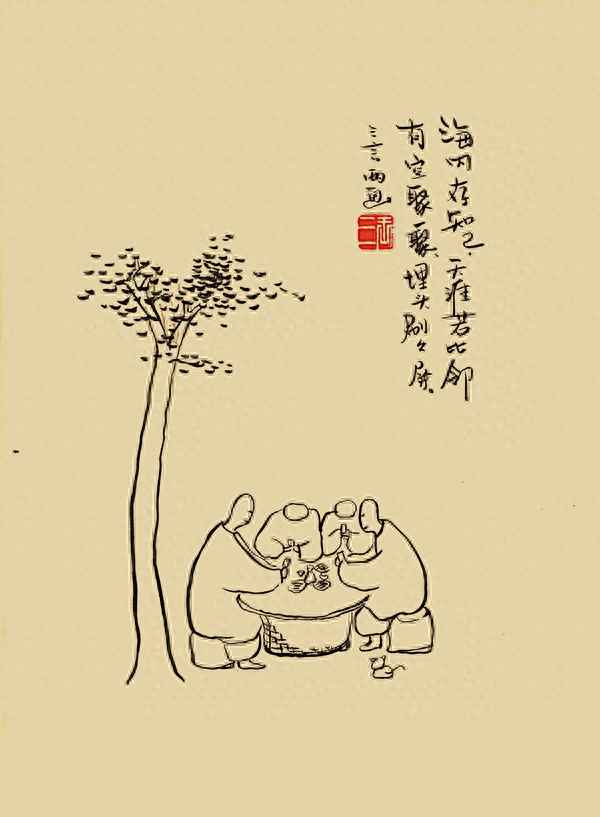 海内存知己.天涯若比邻
有空聚聚,埋头刷刷屏.
三言两画